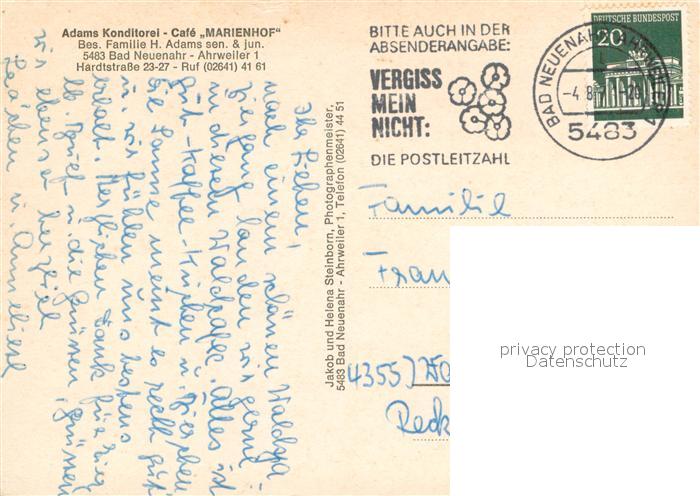 Adams Konditorei - Café „MARIENHOF"
Bes. Familie H. Adams sen. & jun.
5483 Bad Neuenahr - Ahrweiler 1
Hardtstraße 23-27 - Ruf (02641) 41 61
Ihr Lieben!
nach einem schönen Waldspa-
ziergang landen wir gerne
in diesem Waldcafe. Alles ist
gut - Kaffee - Kuchen u. Bierchen
die Sonne meint es recht gut
u. wir fühlen uns bestens
erholt. Herzlichen Dank für Euren
lb. Brief u. die Grüsse, grüssen
wir ebenso herzlich
u. Anneliese
Jakob und Helena Steinborn, Photographenmeister,
5483 Bad Neuenahr - Ahrweiler 1, Telefon (02641) 44 51
BITTE AUCH IN DER
ABSENDERANGABE:
VERGISS
MEIN
NICHT:
DIE POSTLEITZAHL
BAD NEUENAHR-AHRWEILER
-4.8.
5483
DEUTSCHE BUNDESPOST
20
Familie
Fran
4355
Reck
privacy protection
Datenschutz